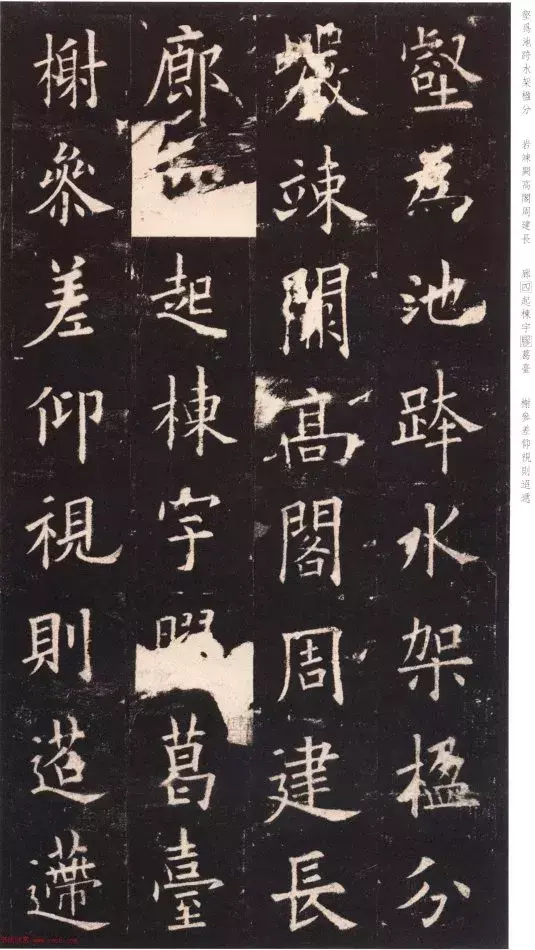 壑為池跨水架楹分
巖竦闕高閣周建長
廊起棟宇葛臺
榭參差仰視則迢遰
壑爲池跨水架楹分
岩竦闕高閣周建長
廊四起棟宇膠葛臺
榭參差仰視則迢遞